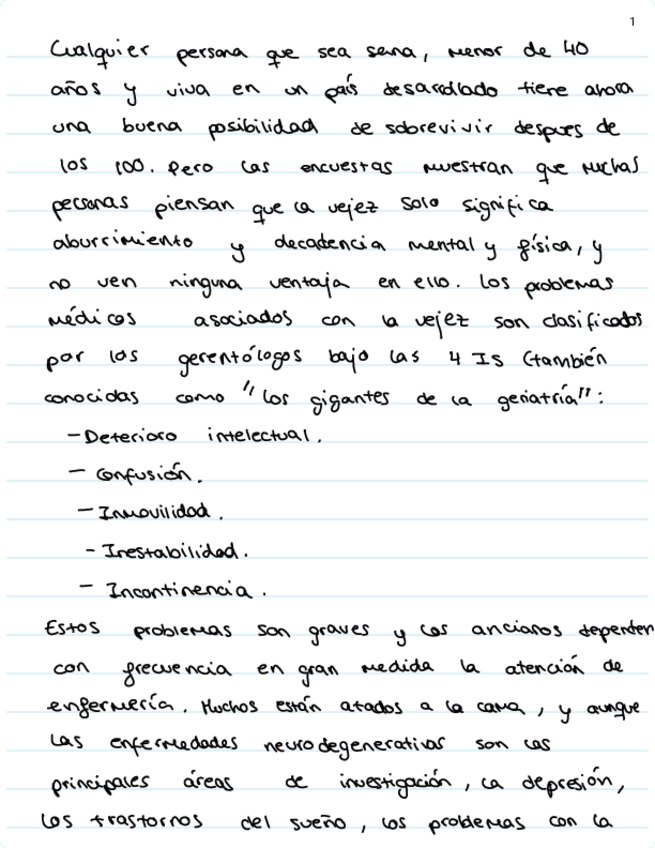 1
Cualquier persona que sea sana, menor de 40
años y viva en un país desarrollado tiene ahora
una buena posibilidad de sobrevivir despues de
los 100. Pero las encuestas muestran que muchas
personas piensan que la vejez solo significa
aburrimiento y decadencia mental y física, y
no ven ninguna ventaja en ello. Los problemas
médicos asociados con la vejez son clasificados
por los gerentólogos bajo las 4 Is (también
conocidas como "los gigantes de la geriatría":
- Deterioro intelectual.
- Confusión.
- Inmovilidad.
- Inestabilidad.
- Incontinencia.
Estos problemas son graves y los ancianos dependen
con frecuencia en gran medida la atención de
enfermería. Muchos están atados a la cama, y aunque
las enfermedades neurodegenerativas son las
principales áreas de investigación, la depresión,
los trastornos del sueño, los problemas con la